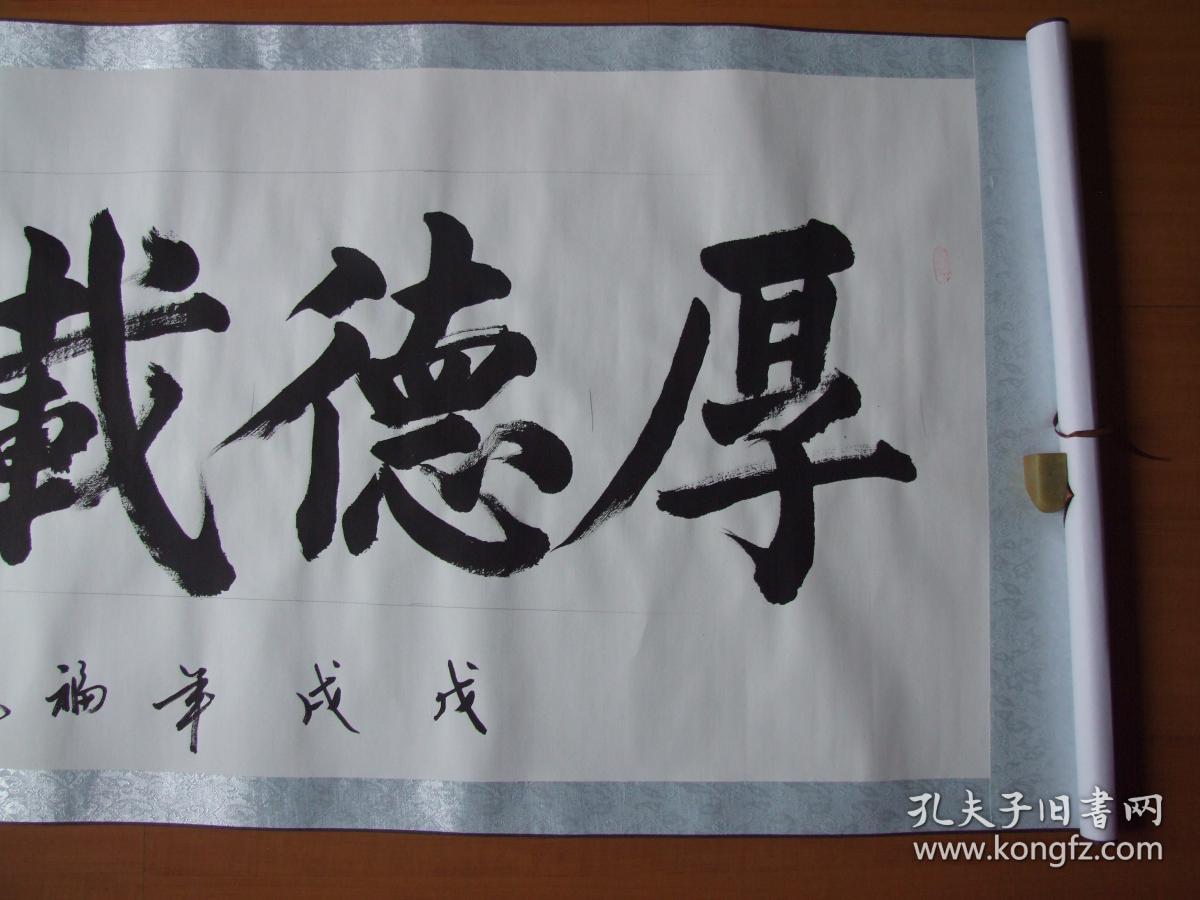 厚德載
戊戌年福
孔夫子旧書网
www.kongfz.com